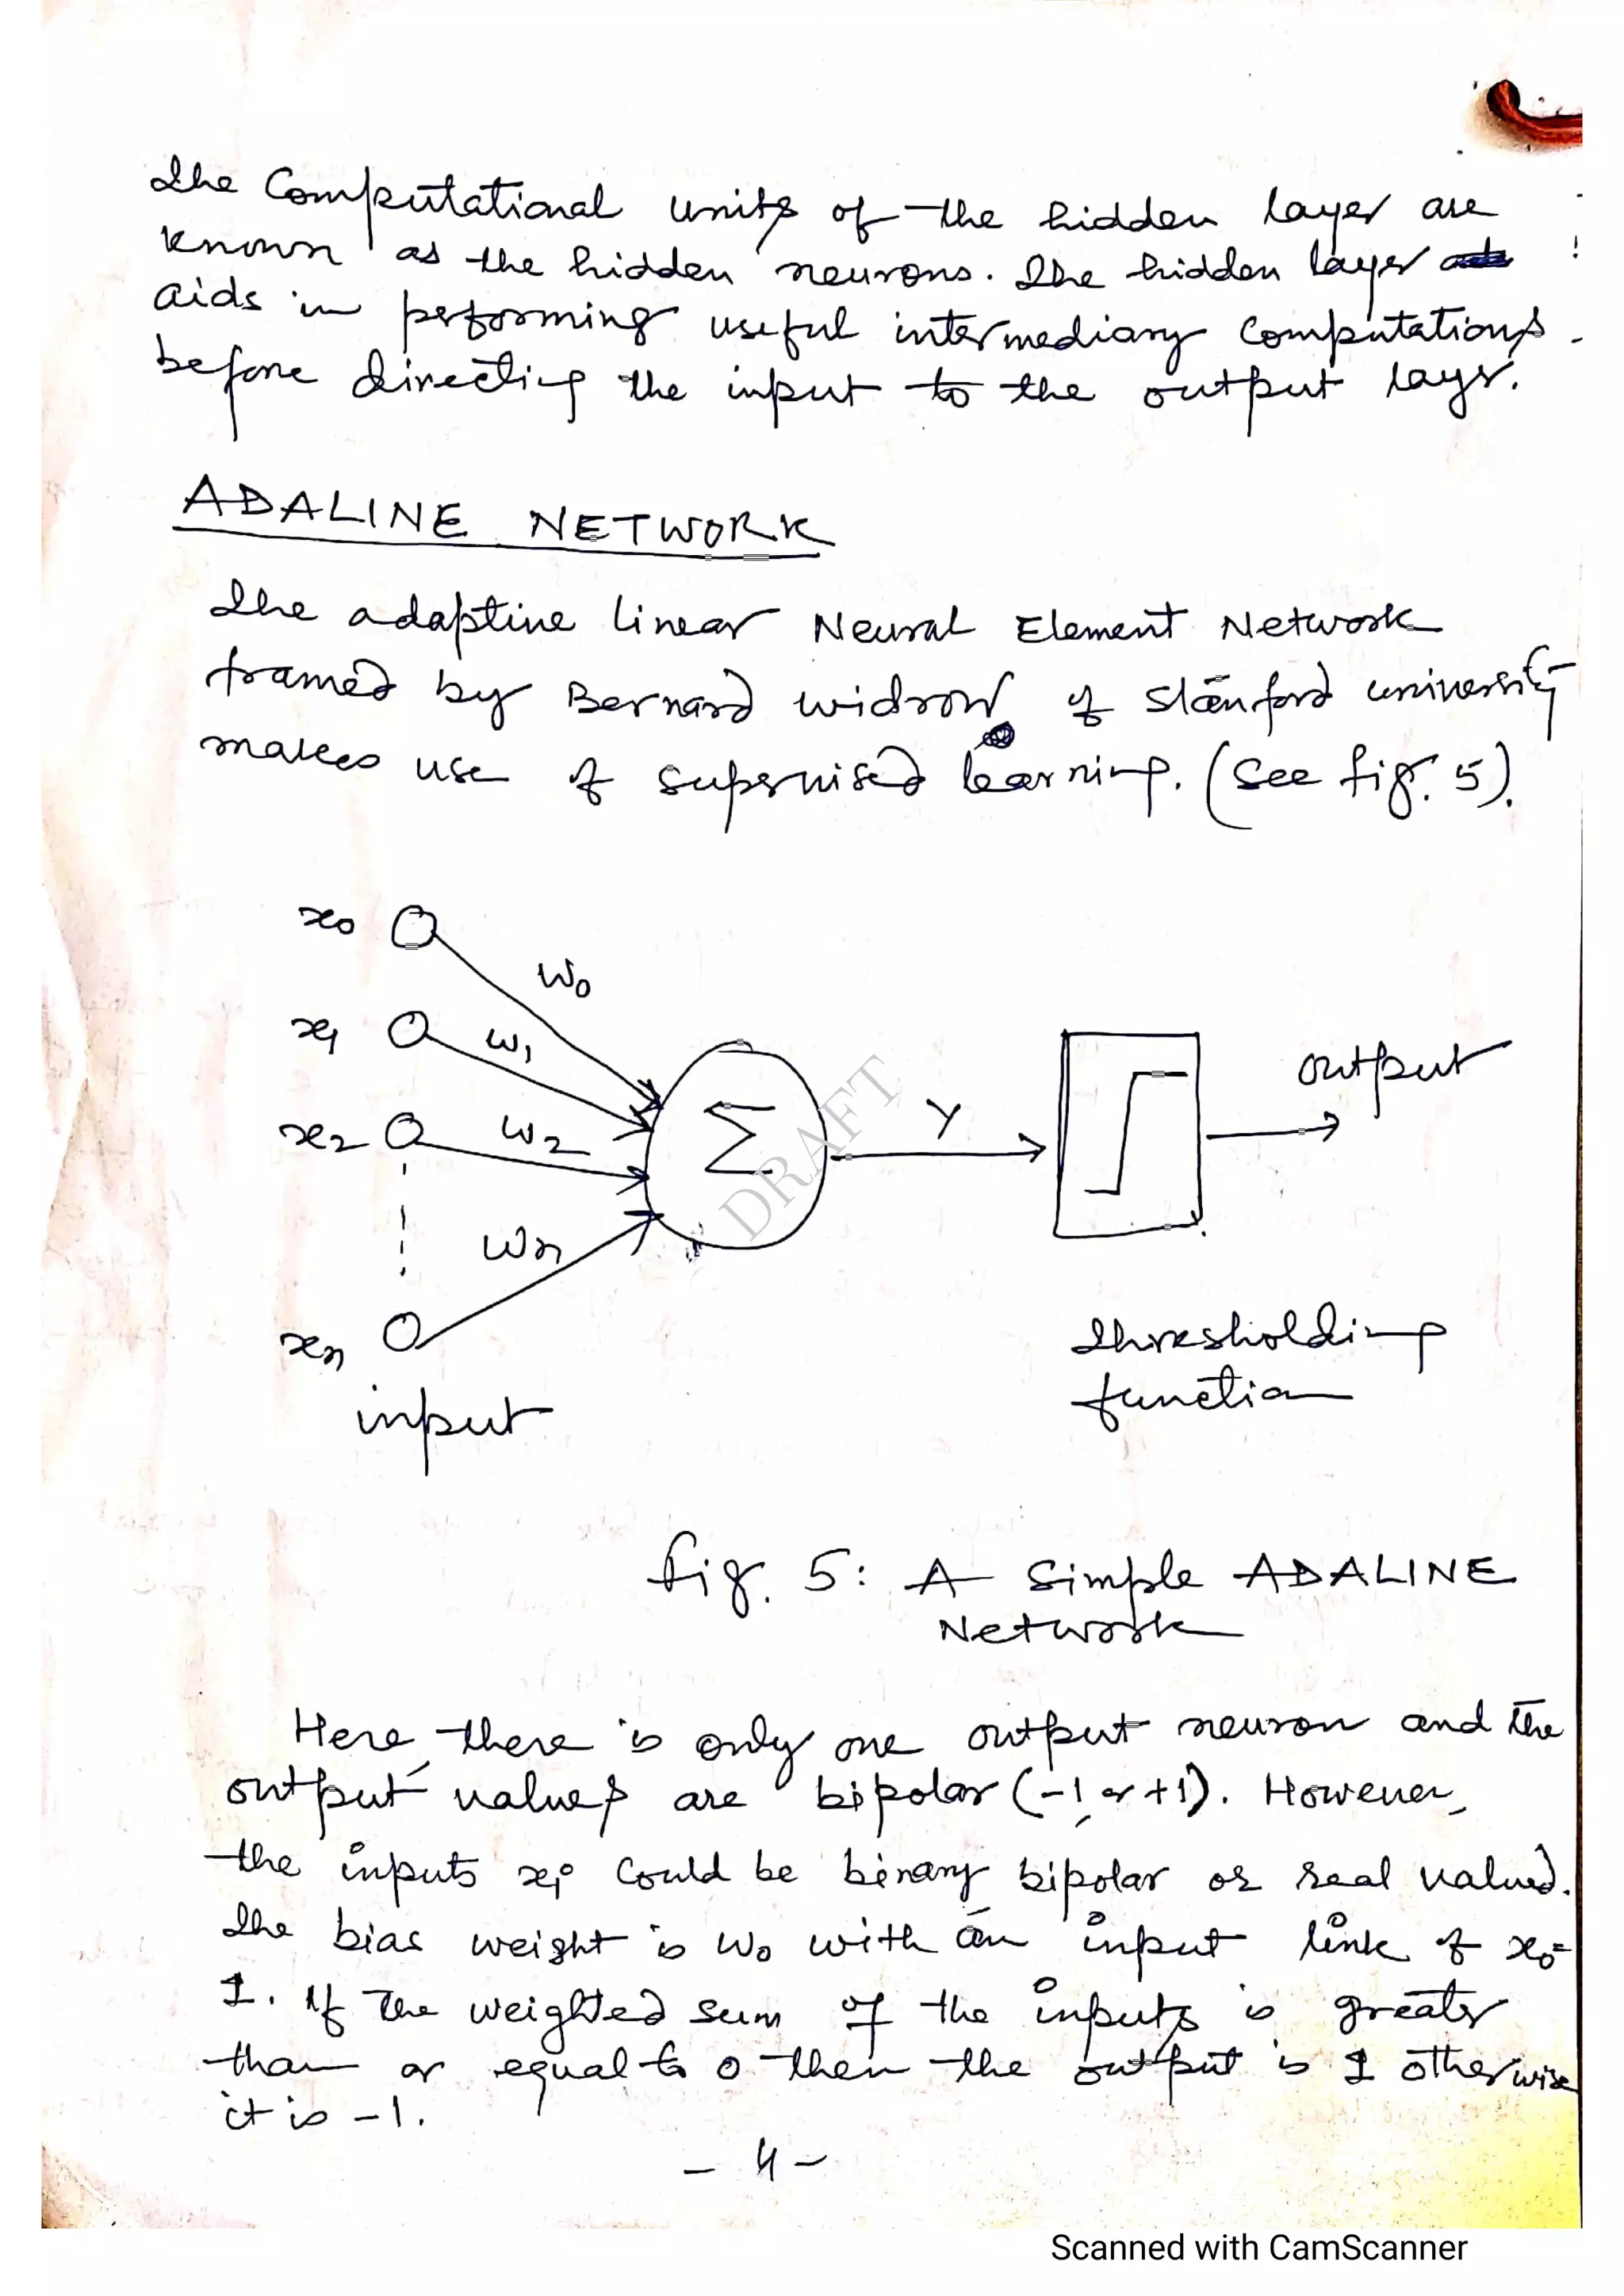 The Computational units of the hidden layer are
known as the hidden neurons. The hidden layer
aids in performing useful intermediary computations
before directing the input to the output layer.
ADALINE NETWORK
The adaptive linear Neural Element Network
framed by Bernard widrow of Stanford university
makes use of supervised learning. (See fig. 5).
x0
W0
x1
w1
x2
w2
Σ
Y
output
wn
xn
input
Thresholding
function
DRAFT
fig. 5: A Simple ADALINE
Network
Here, there is only one output neuron and the
output values are bipolar (-1 or +1). However,
the inputs xi could be binary bipolar or real valued.
The bias weight is W0 with an input link of x0=
1. If the weighted sum of the inputs is greater
than or equal to 0 then the output is 1 otherwise
it is -1.
- 4 -
Scanned with CamScanner